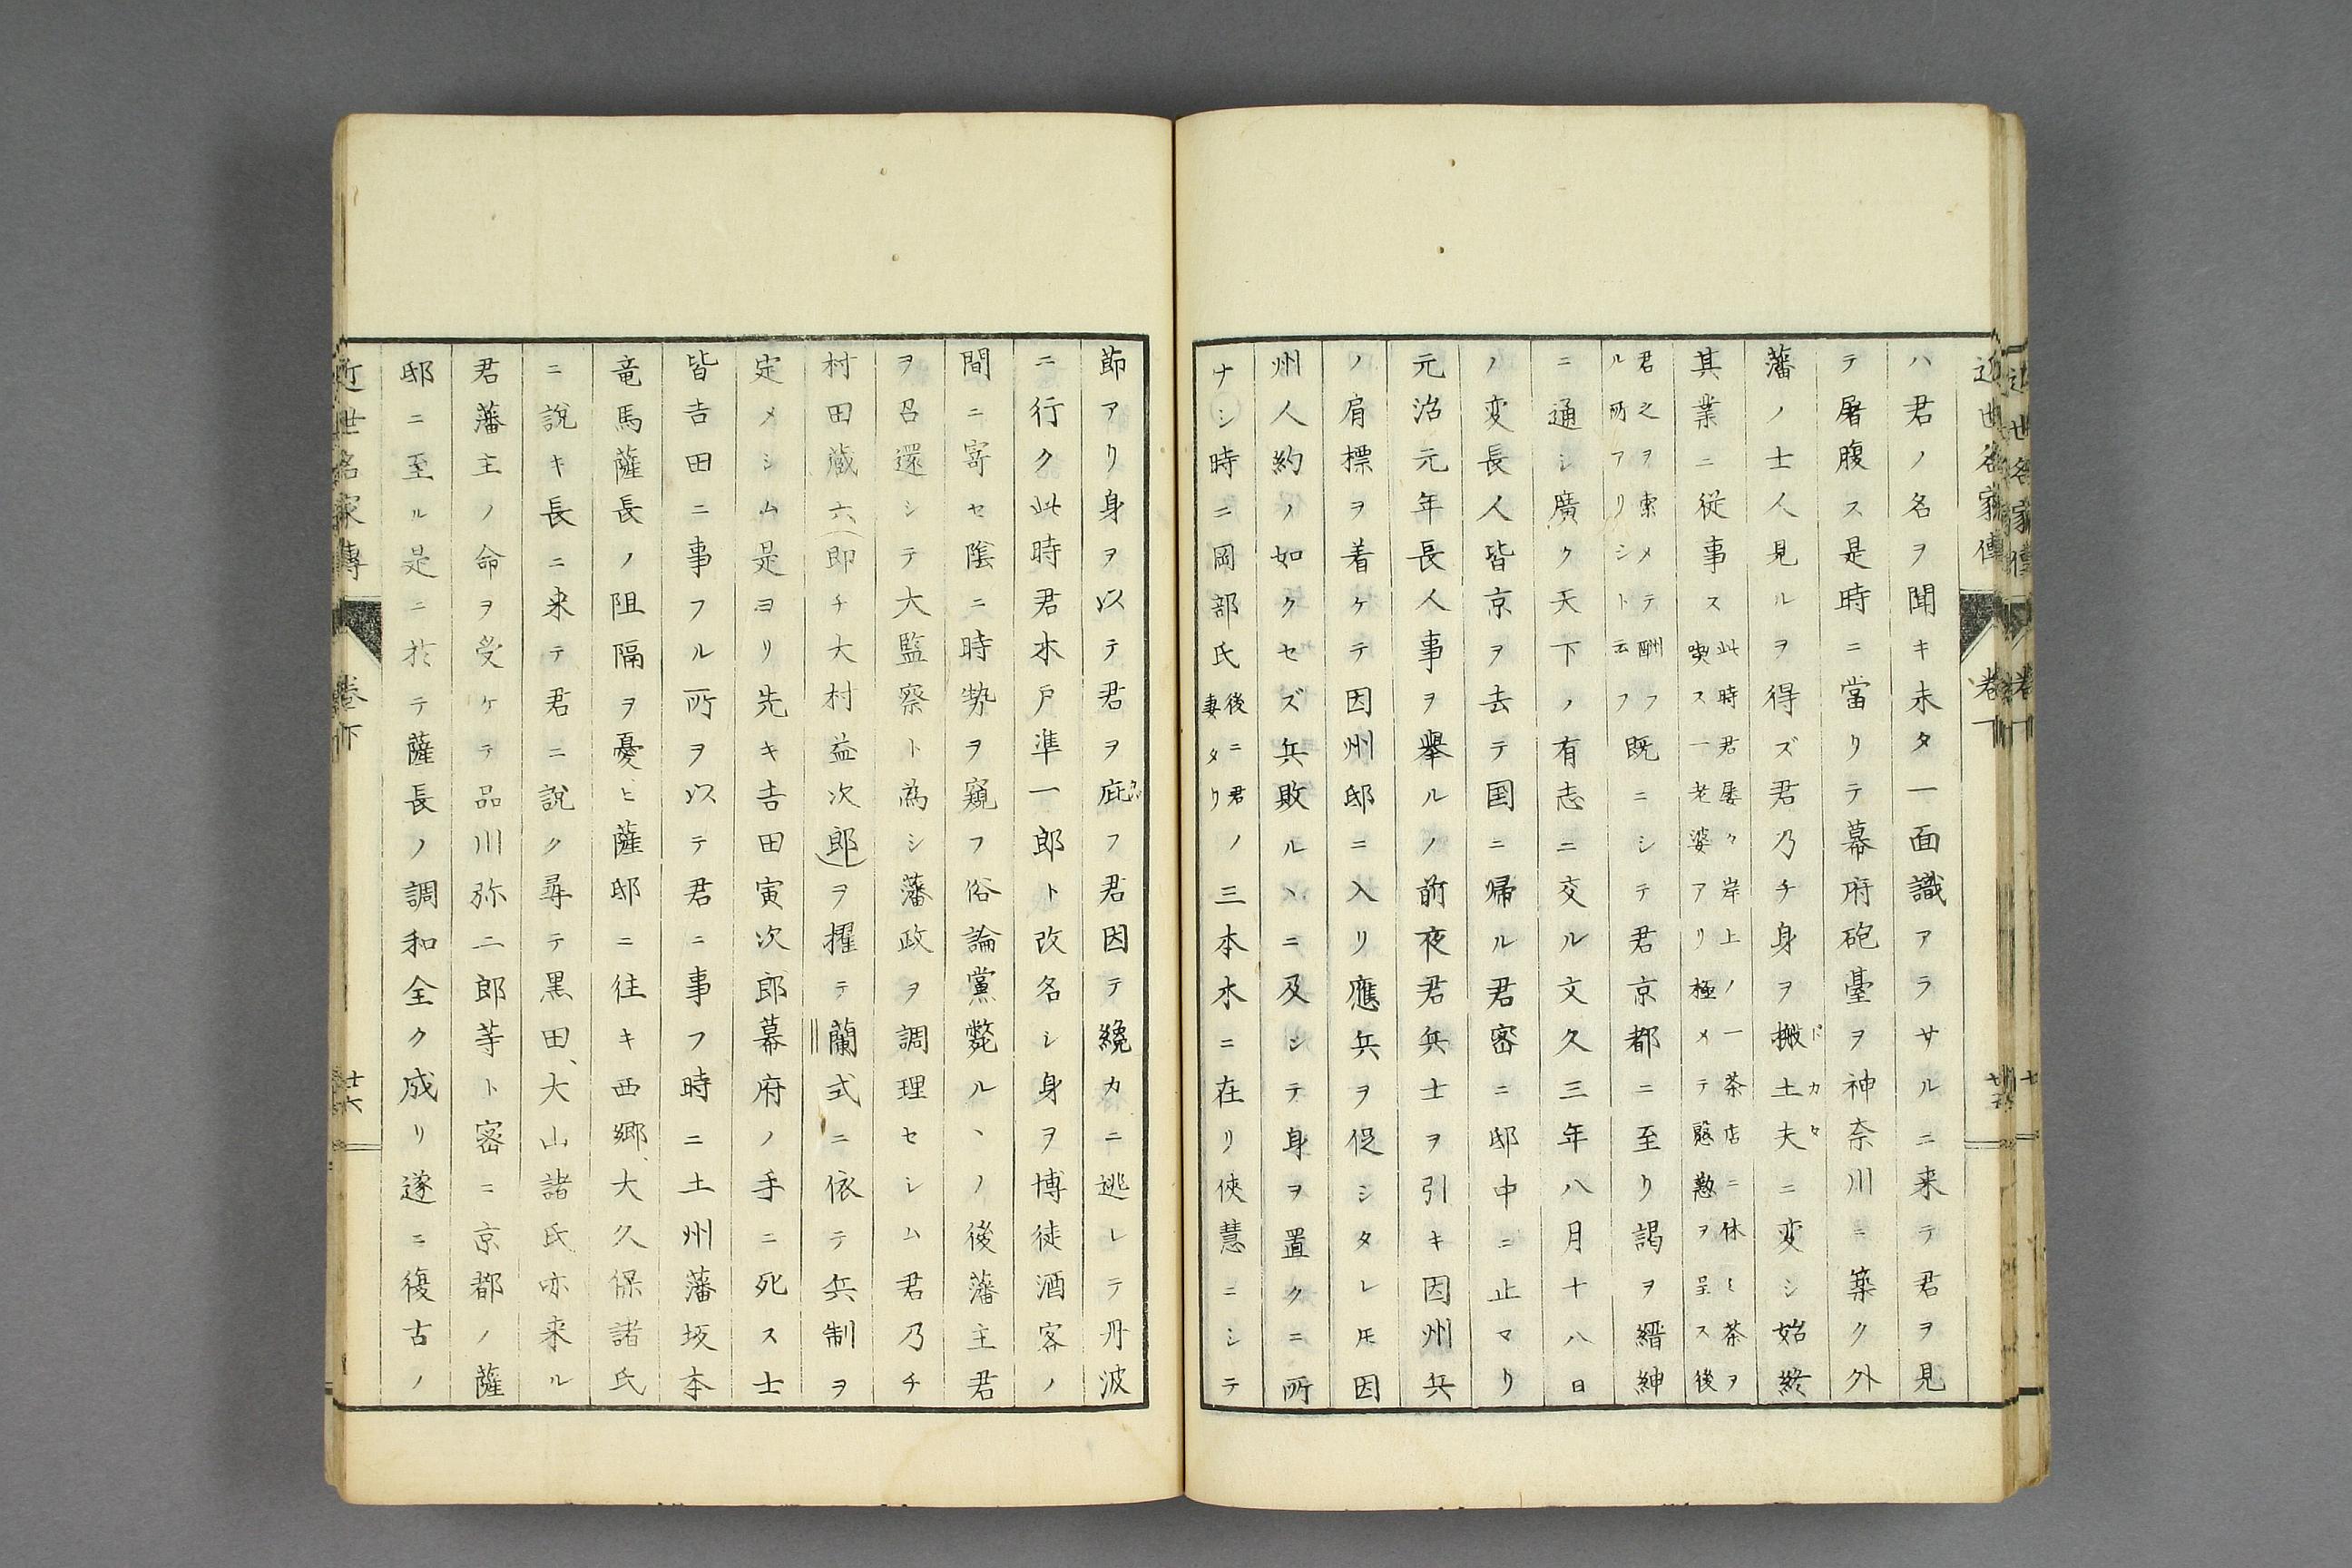 ハ君ノ名ヲ聞キ未タ一面識アラサルニ来テ君ヲ見
テ屠腹ス是時ニ當リテ幕府砲臺ヲ神奈川ニ築ク外
藩ノ士人見ルヲ得ズ君乃チ身ヲ搬土夫ニ変シ始終
ドカタ
其業ニ従事ス
此時君屡々岸上ノ一茶店ニ休ミ茶ヲ
喫ス一老婆アリ極メテ慇懃ヲ呈ス後
君之ヲ索メテ酬フ
ル所アリシト云フ
既ニシテ君京都ニ至リ謁ヲ縉紳
ニ通シ廣ク天下ノ有志ニ交ル文久三年八月十八日
ノ変長人皆京ヲ去テ国ニ帰ル君密ニ邸中ニ止マリ
元治元年長人事ヲ擧ルノ前夜君兵士ヲ引キ因州兵
ノ肩標ヲ着ケテ因州邸ニ入リ應兵ヲ促シタレ𪜈因
州人約ノ如クセズ兵敗ルヽニ及シテ身ヲ置クニ所
ナシ時ニ岡部氏
後ニ君
妻タリ
ノ三本木ニ在リ侠慧ニシテ
近世名家傳
巻下
節アリ身ヲ以テ君ヲ庇フ君因テ纔カニ逃レテ丹波
ニ行ク此時君木戸準一郎ト改名シ身ヲ博徒酒客ノ
間ニ寄セ陰ニ時勢ヲ窺フ俗論黨斃ルヽノ後藩主君
ヲ召還シテ大監察ト為シ藩政ヲ調理セシム君乃チ
村田蔵六(即チ大村益次郎)ヲ擢テ蘭式ニ依テ兵制ヲ
定メシム是ヨリ先キ吉田寅次郎幕府ノ手ニ死ス士
皆吉田ニ事フル所ヲ以テ君ニ事フ時ニ土州藩坂本
竜馬薩長ノ阻隔ヲ憂ヒ薩邸ニ往キ西郷、大久保諸氏
ニ説キ長ニ来テ君ニ説ク尋テ黒田、大山諸氏亦来ル
君藩主ノ命ヲ受ケテ品川弥二郎等ト密ニ京都ノ薩
邸ニ至ル是ニ於テ薩長ノ調和全ク成リ遂ニ復古ノ
近世名家傳
巻下
廿六